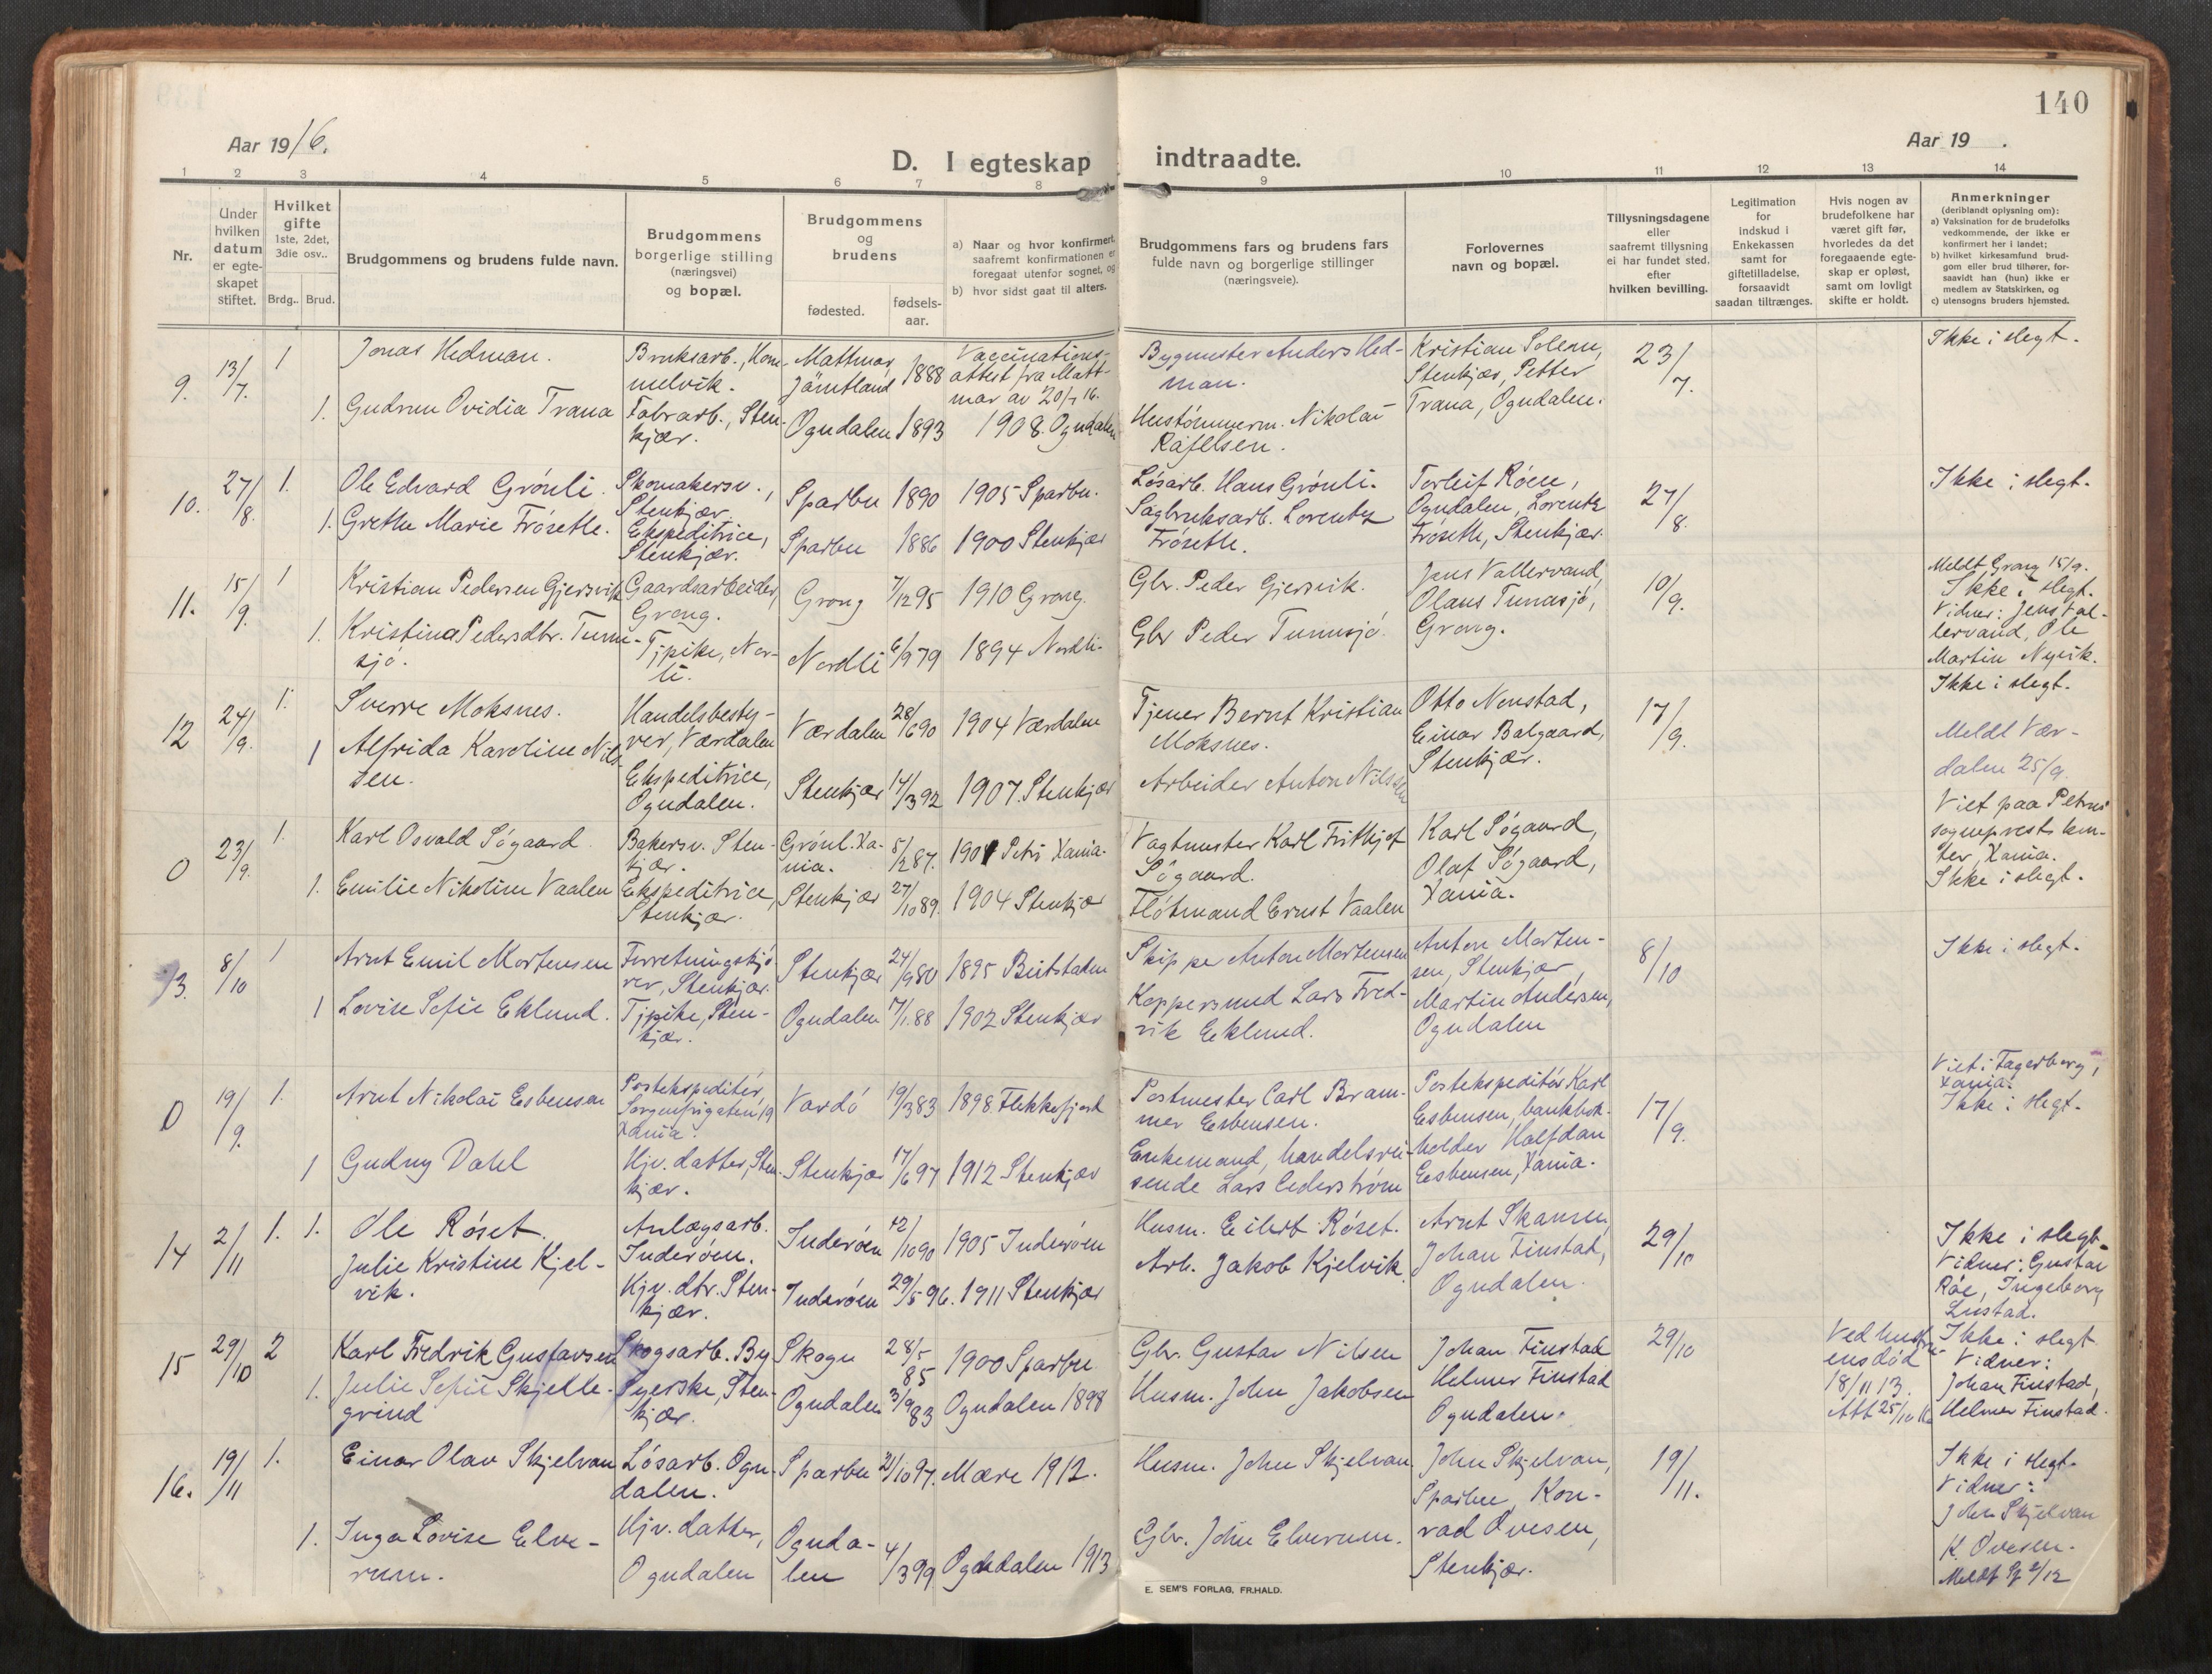 140
Aar 1916.
Aar 19 .
D. I egteskap indtraadte.
1 2 3 4 5 6 7 8 9 10 11 12 13 14
Nr.
Under hvilken datum er egteskapet stiftet.
Hvilket gifte
1ste, 2det, 3die osv..
Brdg.. Brud.
Brudgommens og brudens fulde navn.
Brudgommens borgerlige stilling (næringsvei) og bopæl.
Brudgommens og brudens
fødested.
fødsels-aar.
a) Naar og hvor konfirmert, saafremt konfirmationen er foregaat utenfor sognet, og
b) hvor sidst gaat til alters.
Brudgommens fars og brudens fars fulde navn og borgerlige stillinger (næringsveie).
Forlovernes navn og bopæl.
Tillysningsdagene eller saafremt tillysning ei har fundet sted, efter hvilken bevilling.
Legitimation for indskud i Enkekassen samt for giftetilladelse, forsaavidt saadan tiltrænges.
Hvis nogen av brudefolkene har været gift før, hvorledes da det foregaaende egteskap er opløst, samt om lovligt skifte er holdt.
Anmerkninger (deriblandt oplysning om):
a) Vaksination for de brudefolks vedkommende, der ikke er konfirmert her i landet;
b) hvilket kirkesamfund brudgom eller brud tilhører, forsaavidt han (hun) ikke er medlem av Statskirken, og
c) utensogns bruders hjemsted.
9. 13/7. 1 Jonas Hedman. Bruksarb., Hommelvik. Mattmar Jämtland 1888 Vaccinationsattest fra Mattmar av 20/7 16. Bygmester Anders Hedman. Kristian Solem, Stenkjær, Petter Trana, Ogndalen. 23/7. Ikke i slegt.
1. Gudrun Ovidia Trana Fabrarb., Stenkjær. Ogndalen 1893 1908. Ogndalen Hustömmerm. Nikolai Rafelsen.
10. 27/8. 1. Ole Edvard Grönli. Skomakersv., Stenkjær. Sparbu 1890 1905 Sparbu. Løsarb. Hans Grönli. Torleif Röen, Ogndalen, Lorentz Frösetle, Stenkjær. 27/8. Ikke i slegt.
1. Grethe Marie Frösetle. Ekspeditrice, Stenkjær. Sparbu 1886 1900 Stenkjær Sagbruksarb. Lorentz Frösetle.
11. 15/9. 1 Kristian Pedersen Gjersvik Gaardsarbeider, Grong. Grong 7/12 95 1910 Grong. Gbr. Peder Gjersvik. Jens Vallervand, Olaus Tunnsjö, Grong. 10/9. Meldt Grong 15/9. Ikke i slegt. Vidner: Jens Vallervand, Ole Martin Nyvik.
1. Kristina Pedersdtr. Tunnsjö. Tjpike, Nordli. Nordli 6/9 79 1894 Nordli. Gbr Peder Tunnsjö.
12 24/9. 1. Sverre Moksnes. Handelsbestyrer, Værdalen Værdalen 28/6 90 1904 Værdalen Tjener Bernt Kristian Moksnes. Otto Nenstad, Einar Balgaard, Stenkjær. 17/9. Ikke i slegt. Meldt Værdalen 25/9.
1 Alfrida Karoline Nilssen. Ekspeditrice, Ogndalen. Stenkjær 14/3 92 1907. Stenkjær Arbeider Anton Nilssen
0 23/9. 1. Karl Osvald Søgaard Bakersv. Stenkjær. Grönl. Xania. 5/2 87. 1901 Petri Xania. Vagtmester Karl Frithjof Søgaard. Karl Søgaard, Olaf Søgaard, Xania. Viet paa Petrus sogneprests kontor, Xania. Ikke i slegt.
1. Emilie Nikoline Vaalen Ekspeditrice, Stenkjær. Stenkjær 27/10 89. 1904 Stenkjær Fløtmand Ernst Vaalen
13. 8/10 1 Arnt Emil Mortensen Forretningskjører, Stenkjær. Stenkjær 24/9 80 1895 Beitstaden Skipper Anton Mortensen Anton Mortensen, Stenkjær, Martin Andersen, Ogndalen 8/10 Ikke i slegt.
1 Lovise Sofie Eklund. Tjpike, Stenkjær. Ogndalen 7/1. 88 1902 Stenkjær Koppersmed Lars Fredvik Eeklund.
0 19/9. 1. Arnt Nikolai Esbensen Postekspeditör, Sorgenfrigaten 19 Xania. Vardö 19/3 83 1898 Flekkefjord Postmester Carl Brammer Esbensen. Postekspeditör Karl Esbensen, bankbokholder Halfdan Esbensen, Xania. 17/9. Viet i Fagerborg, Xania. Ikke i slegt.
1 Gudny Dahl Hjv. datter, Stenkjær. Stenkjær 17/6 97 1912 Stenkjær Enkemand, handelsreisende Lars Cederström
14 2/11 1. 1. Ole Röset. Anlægsarb. Inderöen. Inderöen 12/10 90 1905 Inderöen Husm. Eilert Röset. Arnt Skansen, Johan Finstad, Ogndalen. 29/10 Ikke i slegt. Vidner: Gustav Röe, Ingeborg Lustad.
Julie Kristine Kjelvik. Hjv. dtr. Stenkjær. Inderöen 29/5 96. 1911 Stenkjær Arb. Jakob Kjelvik.
15 29/10 2 Karl Fredrik Gustavsen Skogsarb. By Skogn 28/5 85 1900 Sparbu Gbr. Gustav Nilsen Johan Finstad Helmer Finstad Ogndalen. 29/10 Ved hustruens död 18/11 13. Att 25/10 16 Ikke i slegt Vidner: Johan Finstad, Helmer Finstad.
1. Julie Sofie Skjellegrind Syerske, Stenkjær. Ogndalen 3/9 83 Ogndalen 1898 Husm. John Jakobsen
16. 19/11 1. Einar Olav Skjelvan Løsarb. Ogndalen. Sparbu 21/10 97. Mære 1912. Husm. John Skjelvan. John Skjelvan, Sparbu, Konrad Ovesen, Stenkjær. 19/11. Ikke i slegt. Vidner: John Skjelvan K. Ovesen. Meldt Sp 2/12
1. Inga Lovise Elverum. Hjv. datter, Ogndalen Ogndalen 4/3 99 Ogndalen 1913 Gbr. John Elverum.
E. SEM'S FORLAG, FR.HALD.